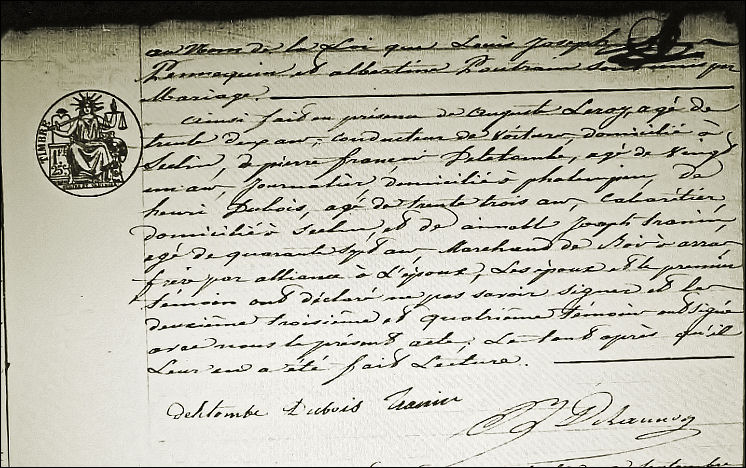 au Nom de la Loi que Louis Joseph
Pennequin et albertine Pautrai sont unis par
Mariage.
ainsi fait en présence de auguste Leroy, agé de
trente deux an, conducteur de Voiture, domicilié à
Seclin, de pierre françois Deletombe, agé de Vingt
un an, Journalier domicilié à phalempin, de
henri Dubois, agé de trente trois an, Cabaretier
domicilié à Seclin, et de annabl Joseph tranin,
agé de quarante sept an, Marchand de Bois à arras
frère par alliance à L'époux, Les époux et le premier
témoin ont déclaré ne pas savoir signer et les
deuxième troisième et quatrième témoin ont signé
avec nous le présent acte, Le tout après qu'il
Leur en a été fait Lecture.
TIMBRE
Deletombe Dubois Tranin